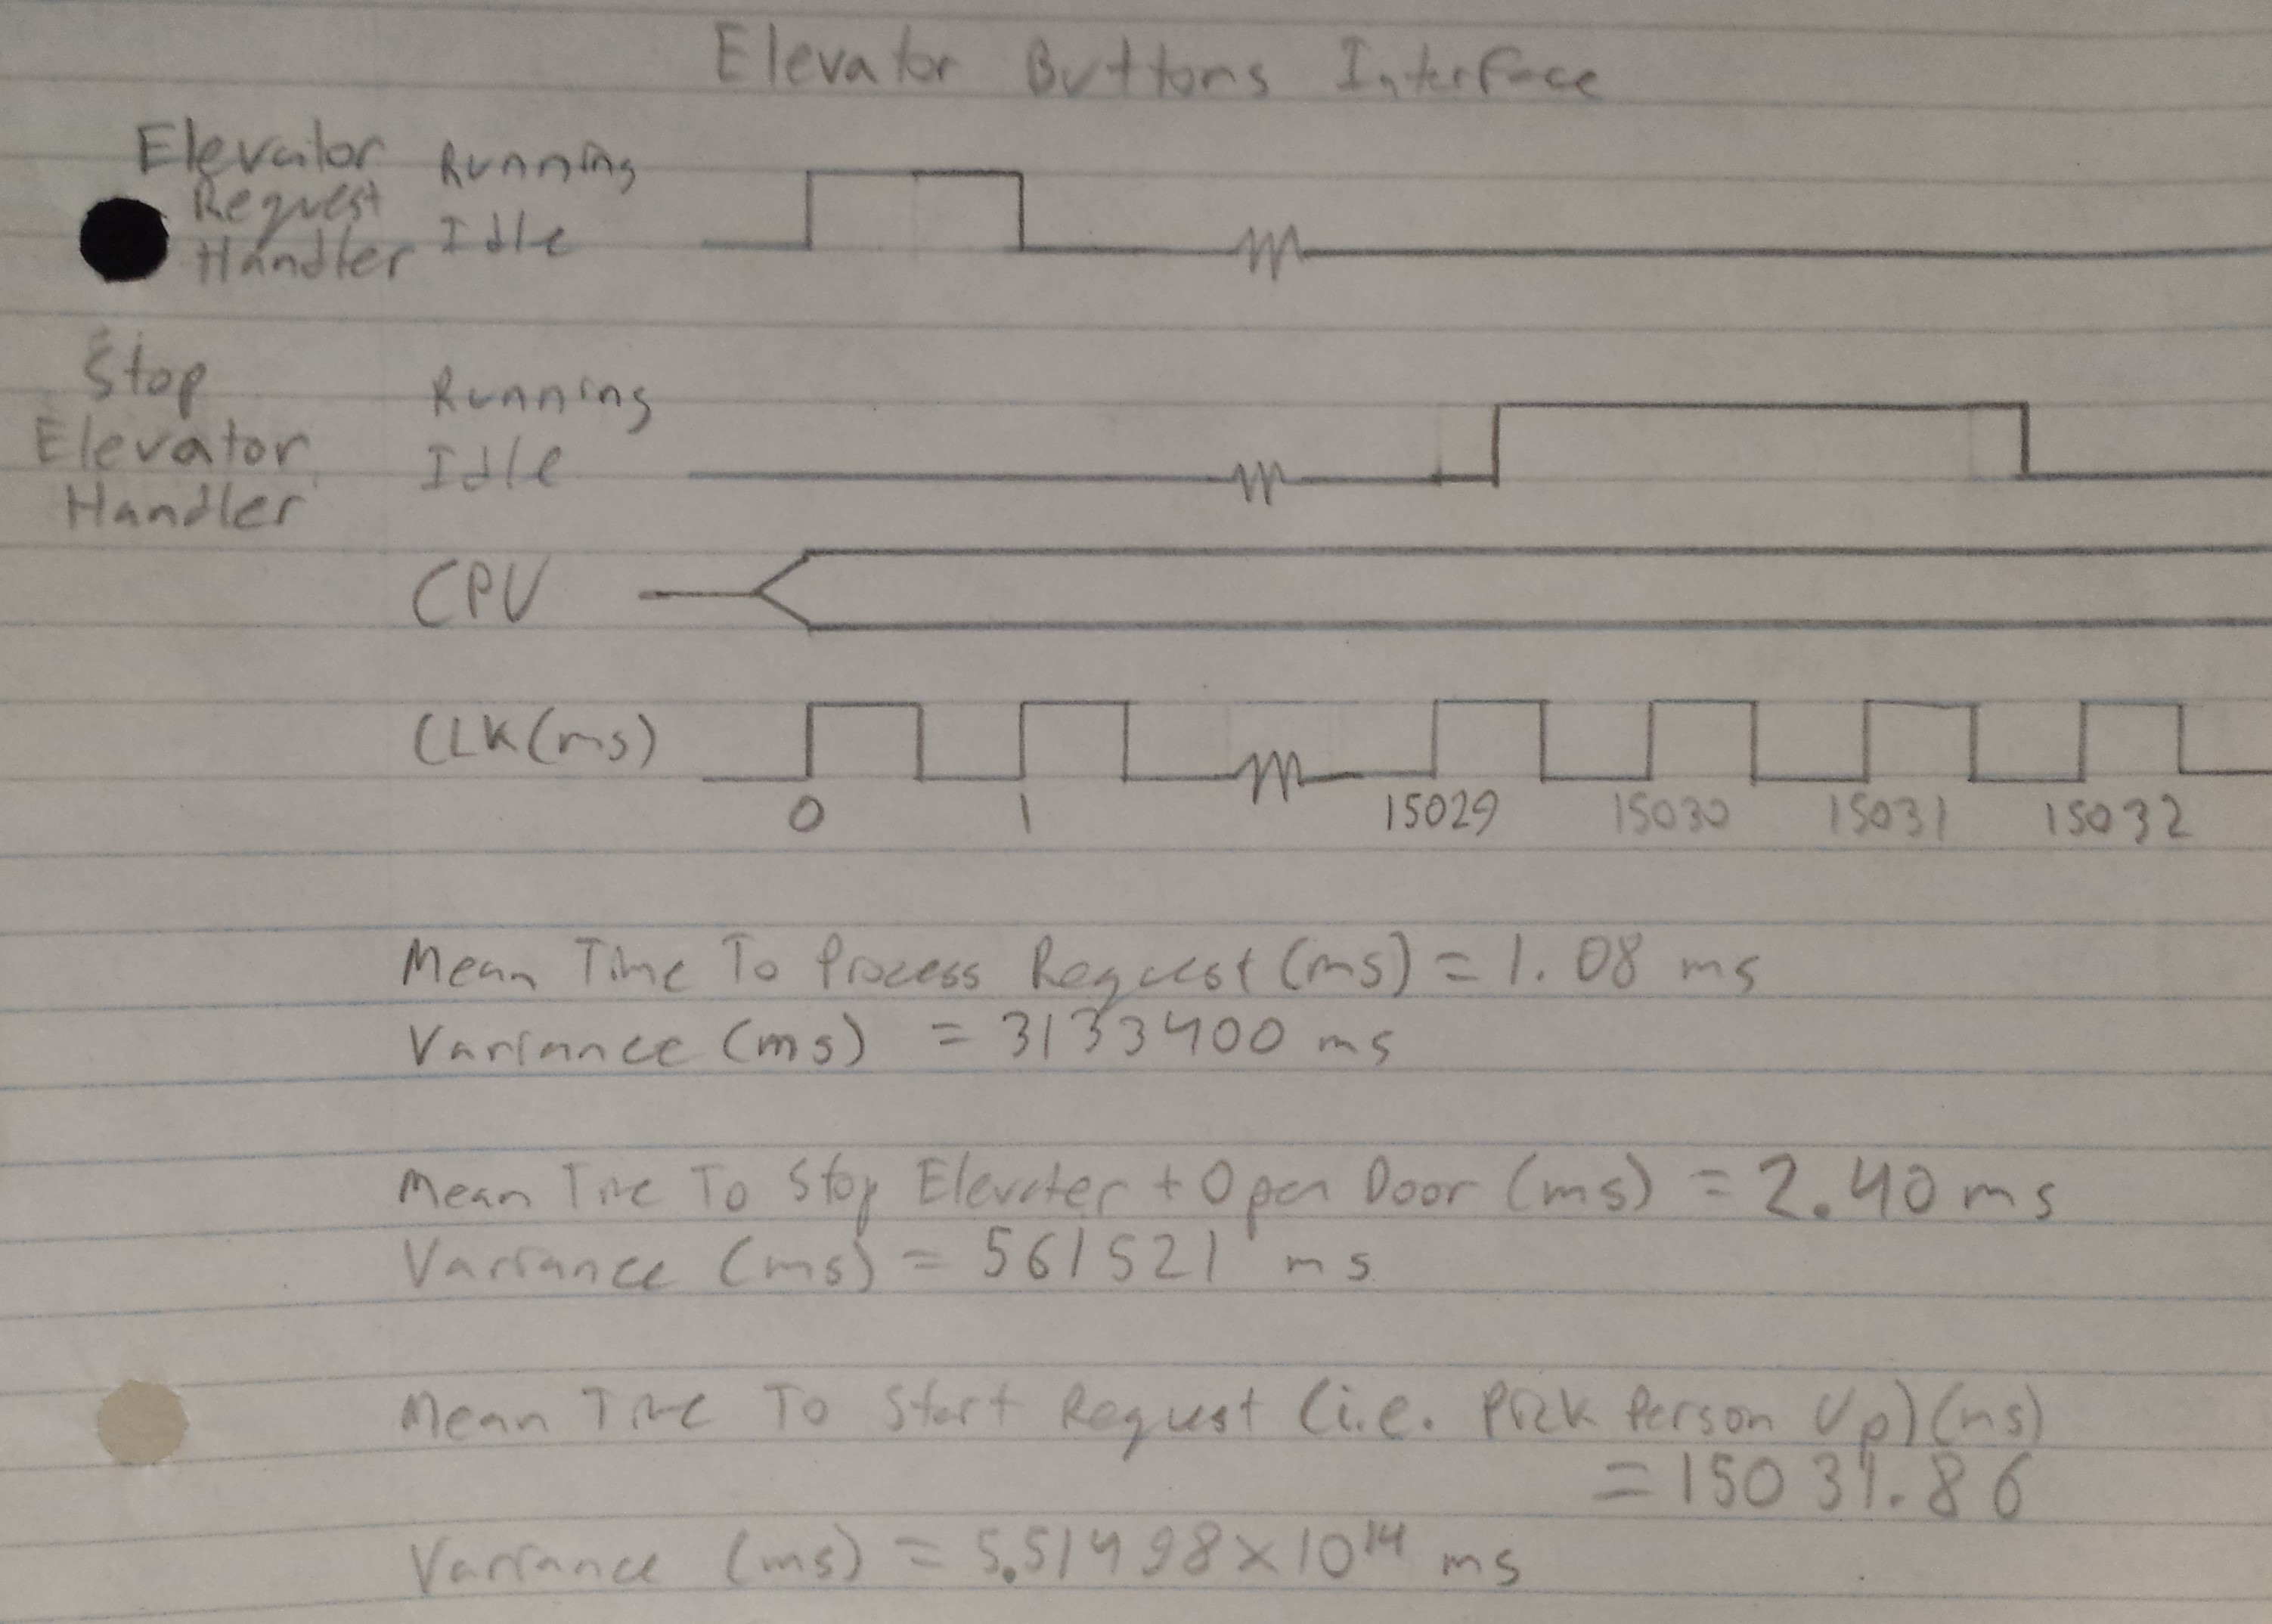 Elevator Buttons Interface
Elevator Running
Request
Handler Idle
Stop Running
Elevator Idle
Handler
CPU
CLK (ms)
0 1 15029 15030 15031 15032
Mean Time To Process Request (ms) = 1.08 ms
Variance (ms) = 3133400 ms
Mean Time To Stop Elevator + Open Door (ms) = 2.40 ms
Variance (ms) = 561521 ms
Mean Time To Start Request (i.e. Pick Person Up) (ms)
= 15031.86
Variance (ms) = 5.51498 x 10¹⁴ ms